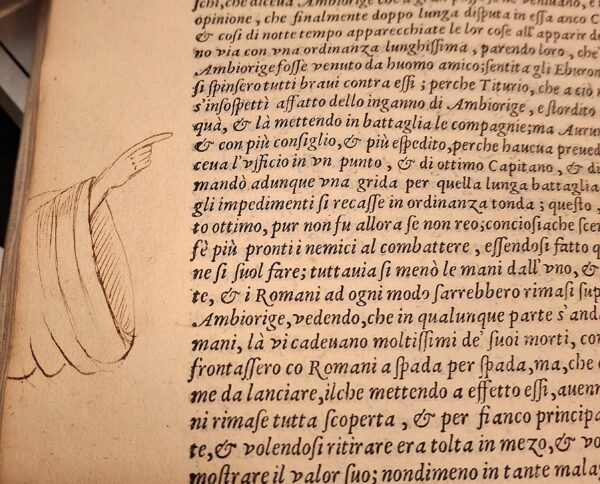 ſchi, che diceua Ambiorige che
opinione, che finalmente doppo lunga diſputa in eſſa anco C
& coſi di notte tempo apparecchiate le lor coſe all'apparir de
no via con vna ordinanza lunghiſſima, parendo loro, che'
Ambiorige foſſe venuto da huomo amico; ſentita gli Eburon
ſi ſpinſero tutti braui contra eſſi; perche Titurio, che a ciò n
s'inſoſpettì affatto dello inganno di Ambiorige, e ſtordito
quà, & là mettendo in battaglia le compagnie; ma Aurun
& con più conſiglio, & più eſpedito, perche haueua preued
ceua l'vfficio in vn punto, & di ottimo Capitano, &
mandò adunque vna grida per quella lunga battaglia
gli impedimenti ſi recaſſe in ordinanza tonda; queſto,
to ottimo, pur non fu allora ſe non reo; conciosiache ſce
fè più pronti i nemici al combattere, eſſendoſi fatto q
ne ſi ſuol fare; tuttauia ſi menò le mani dall'vno, &
te, & i Romani ad ogni modo ſarrebbero rimaſi ſup
Ambiorige, vedendo, che in qualunque parte s'anda
mani, là vi cadeuano moltiſſimi de' ſuoi morti, co
frontaſſero co Romani a ſpada per ſpada, ma, che
me da lanciare, ilche mettendo a effetto eſſi, auenn
ni rimaſe tutta ſcoperta, & per fianco principa
te, & volendoſi ritirare era tolta in mezo, & vo
moſtrare il valor ſuo; nondimeno in tante mala